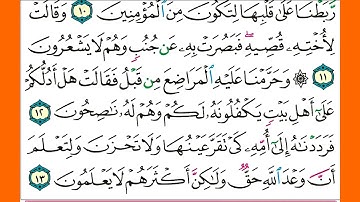 رَّبَطْنَا عَلَىٰ قَلْبِهَا لِتَكُونَ مِنَ ٱلْمُؤْمِنِينَ ١٠ وَقَالَتْ
لِأُخْتِهِۦ قُصِّيهِ ۖ فَبَصُرَتْ بِهِۦ عَن جُنُبٍ وَهُمْ لَا يَشْعُرُونَ
١١ ۞ وَحَرَّمْنَا عَلَيْهِ ٱلْمَرَاضِعَ مِن قَبْلُ فَقَالَتْ هَلْ أَدُلُّكُمْ
عَلَىٰٓ أَهْلِ بَيْتٍ يَكْفُلُونَهُۥ لَكُمْ وَهُمْ لَهُۥ نَـٰصِحُونَ ١٢
فَرَدَدْنَـٰهُ إِلَىٰٓ أُمِّهِۦ كَىْ تَقَرَّ عَيْنُهَا وَلَا تَحْزَنَ وَلِتَعْلَمَ
أَنَّ وَعْدَ ٱللَّهِ حَقٌّ وَلَـٰكِنَّ أَكْثَرَهُمْ لَا يَعْلَمُونَ ١٣